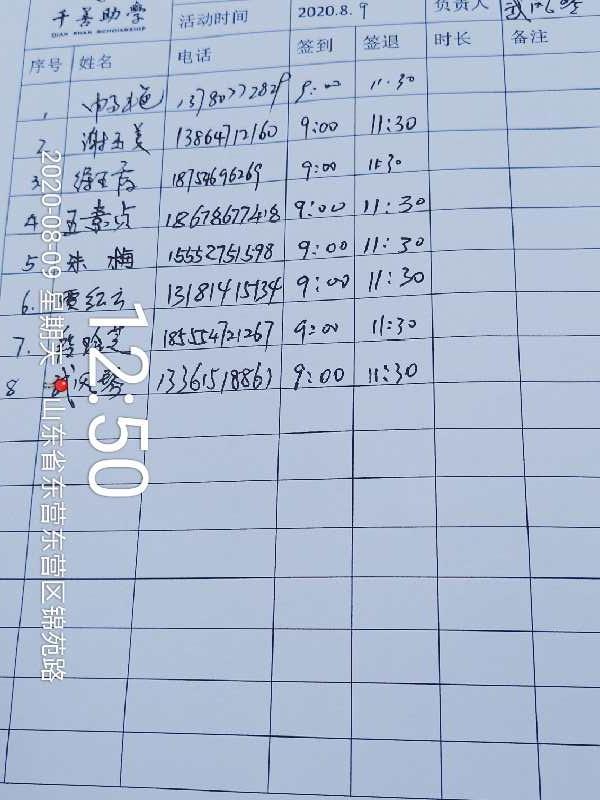 千善助学
QIAN SHAN SCHOLARSHIP
活动时间 2020.8.9 负责人
序号 姓名 电话 签到 签退 时长 备注
1. 13780772829 9:00 11:30
2. 谢玉美 13864712160 9:00 11:30
3. 徐玉霞 18754696269 9:00 11:30
4 王素贞 18678677418 9:00 11:30
5 朱梅 15552751598 9:00 11:30
6. 贾红云 13181415134 9:00 11:30
7. 18554721267 9:00 11:30
8 13361518863 9:00 11:30
12:50
2020-08-09 星期天 山东省东营东营区锦苑路